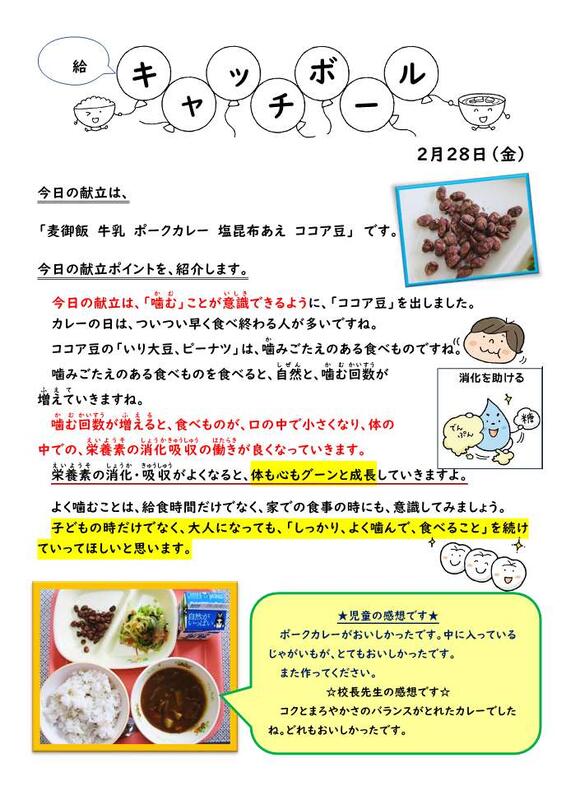 給
キャッチボール
2月28日(金)
今日の献立は、
「麦御飯 牛乳 ポークカレー 塩昆布あえ ココア豆」 です。
今日の献立ポイントを、紹介します。
今日の献立は、「噛む」ことが意識できるように、「ココア豆」を出しました。
カレーの日は、ついつい早く食べ終わる人が多いですね。
ココア豆の「いり大豆、ピーナツ」は、噛みごたえのある食べものですね。
噛みごたえのある食べものを食べると、自然と、噛む回数が
増えていきますね。
噛む回数が増えると、食べものが、口の中で小さくなり、体の
中での、栄養素の消化吸収の働きが良くなっていきます。
栄養素の消化・吸収がよくなると、体も心もグーンと成長していきますよ。
消化を助ける
でんぷん
糖
よく噛むことは、給食時間だけでなく、家での食事の時にも、意識してみましょう。
子どもの時だけでなく、大人になっても、「しっかり、よく噛んで、食べること」を続け
ていってほしいと思います。
自然が
★児童の感想です★
ポークカレーがおいしかったです。中に入っている
じゃがいもが、とてもおいしかったです。
また作ってください。
☆校長先生の感想です☆
コクとまろやかさのバランスがとれたカレーでした
ね。どれもおいしかったです。